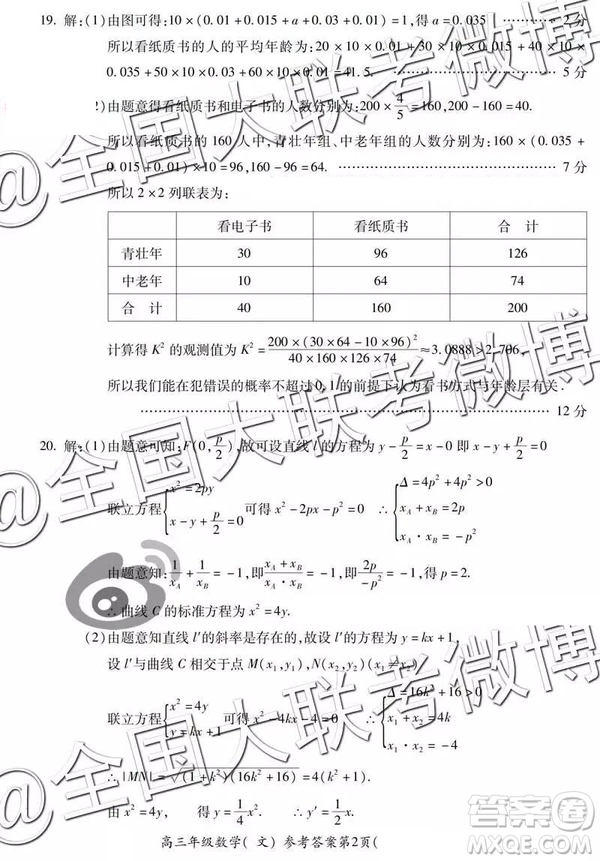 19. 解:(1)由图可得:10×(0.01+0.015+a+0.03+0.01)=1,得 a=0.035 ………… 2分
所以看纸质书的人的平均年龄为:20×10×0.01+30×10×0.015+40×10×
0.035+50×10×0.03+60×10×0.01=41.5. ………… 5分
2)由题意得看纸质书和电子书的人数分别为:200×4/5=160,200-160=40.
所以看纸质书的160人中,青壮年组、中老年组的人数分别为:160×(0.035+
0.015+0.01)×10=96,160-96=64. ………… 7分
所以2×2列联表为:
看电子书 看纸质书 合 计
青壮年 30 96 126
中老年 10 64 74
合 计 40 160 200
计算得 K²的观测值为 K²=200×(30×64-10×96)²/40×160×126×74≈3.0888>2.706,
所以我们能在犯错误的概率不超过0.1的前提下认为看书方式与年龄层有关.
………… 12分
20. 解:(1)由题意可知:F(0,p/2),故可设直线 l′的方程为 y-p/2=x-0 即 x-y+p/2=0
联立方程{x²=2py x-y+p/2=0 可得 x²-2px-p²=0 ∴{Δ=4p²+4p²>0 x_A+x_B=2p x_A·x_B=-p²
由题意知:1/x_A+1/x_B=-1,即 x_A+x_B/x_A·x_B=-1,即2p/-p²=-1,得 p=2.
∴曲线 C 的标准方程为 x²=4y.
(2)由题意知直线 l′的斜率是存在的,故设 l′的方程为 y=kx+1,
设 l′与曲线 C 相交于点 M(x₁,y₁),N(x₂,y₂)(x₁≠x₂)
联立方程{x²=4y y=kx+1 可得 x²-4kx-4=0 ∴{Δ=16k²+16>0 x₁+x₂=4k x₁·x₂=-4
∴|MN|=√(1+k²)(16k²+16)=4(1+k²)
由 x²=4y, 得 y=1/4x². ∴y′=1/2x.
高三年级数学( 文) 参考答案第2页(
@全国大联考微博
@全国大联考微博
答案圈